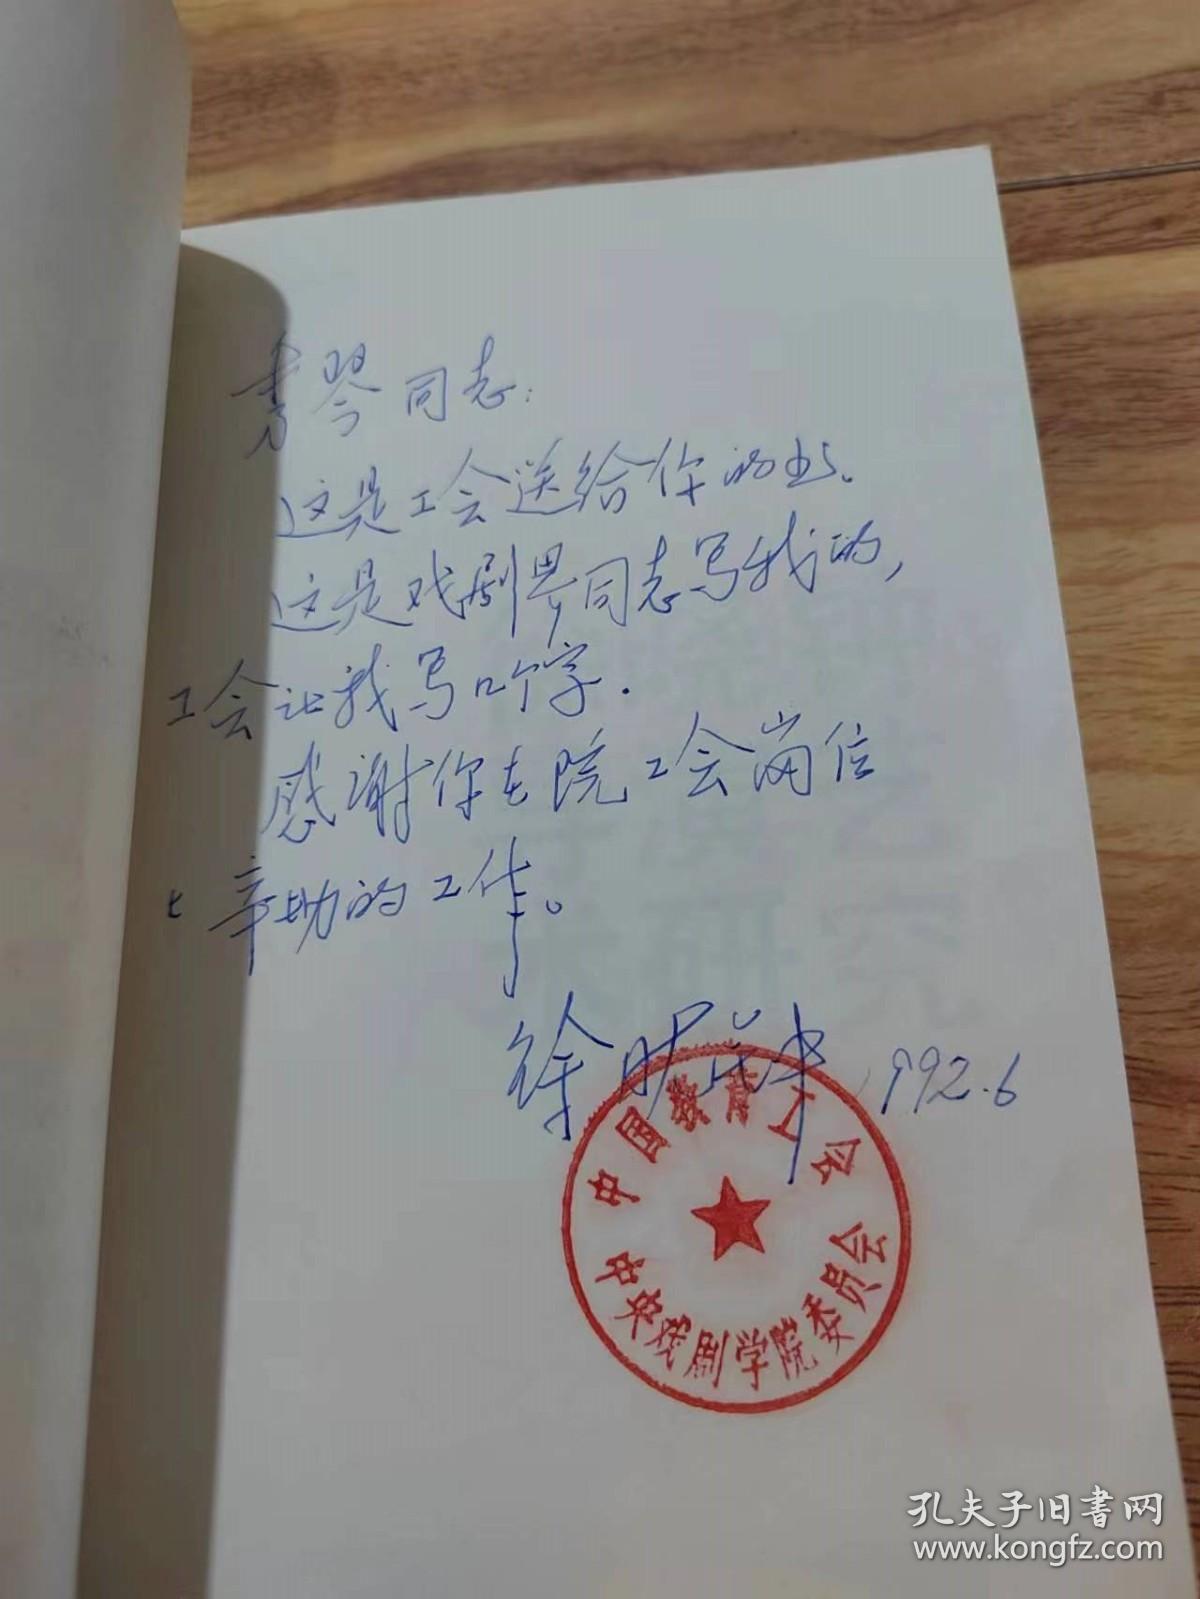 秀琴同志：
这是工会送给你的书、
这是戏剧界同志写我的，
工会让我写几个字．
感谢你在院工会岗位
上辛勤的工作。
徐晓钟 1992.6
中国教育工会
中央戏剧学院委员会
孔夫子旧书网
www.kongfz.com